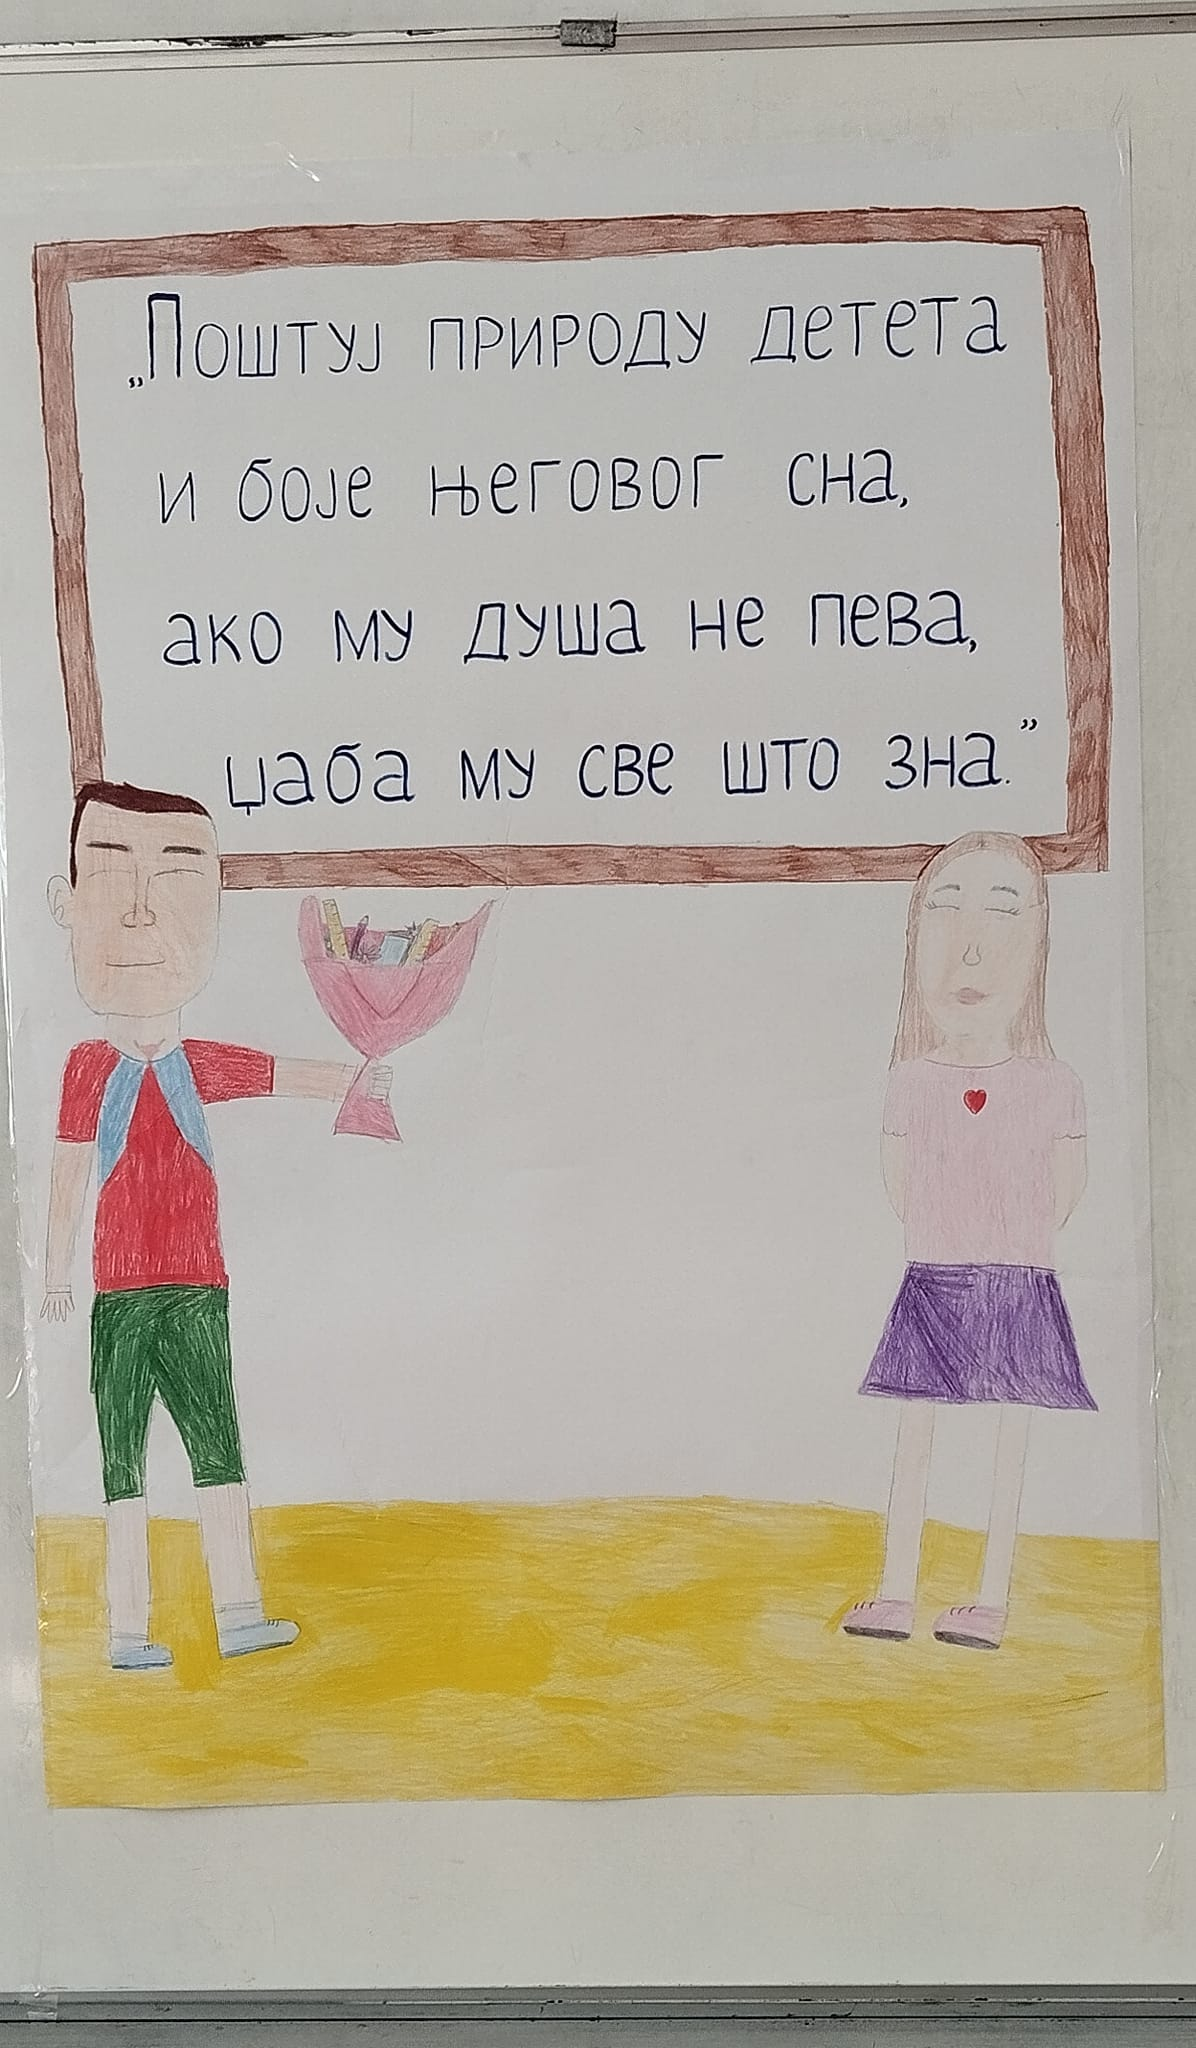 „Поштуј природу детета
и боје његовог сна,
ако му душа не пева,
џаба му све што зна.”